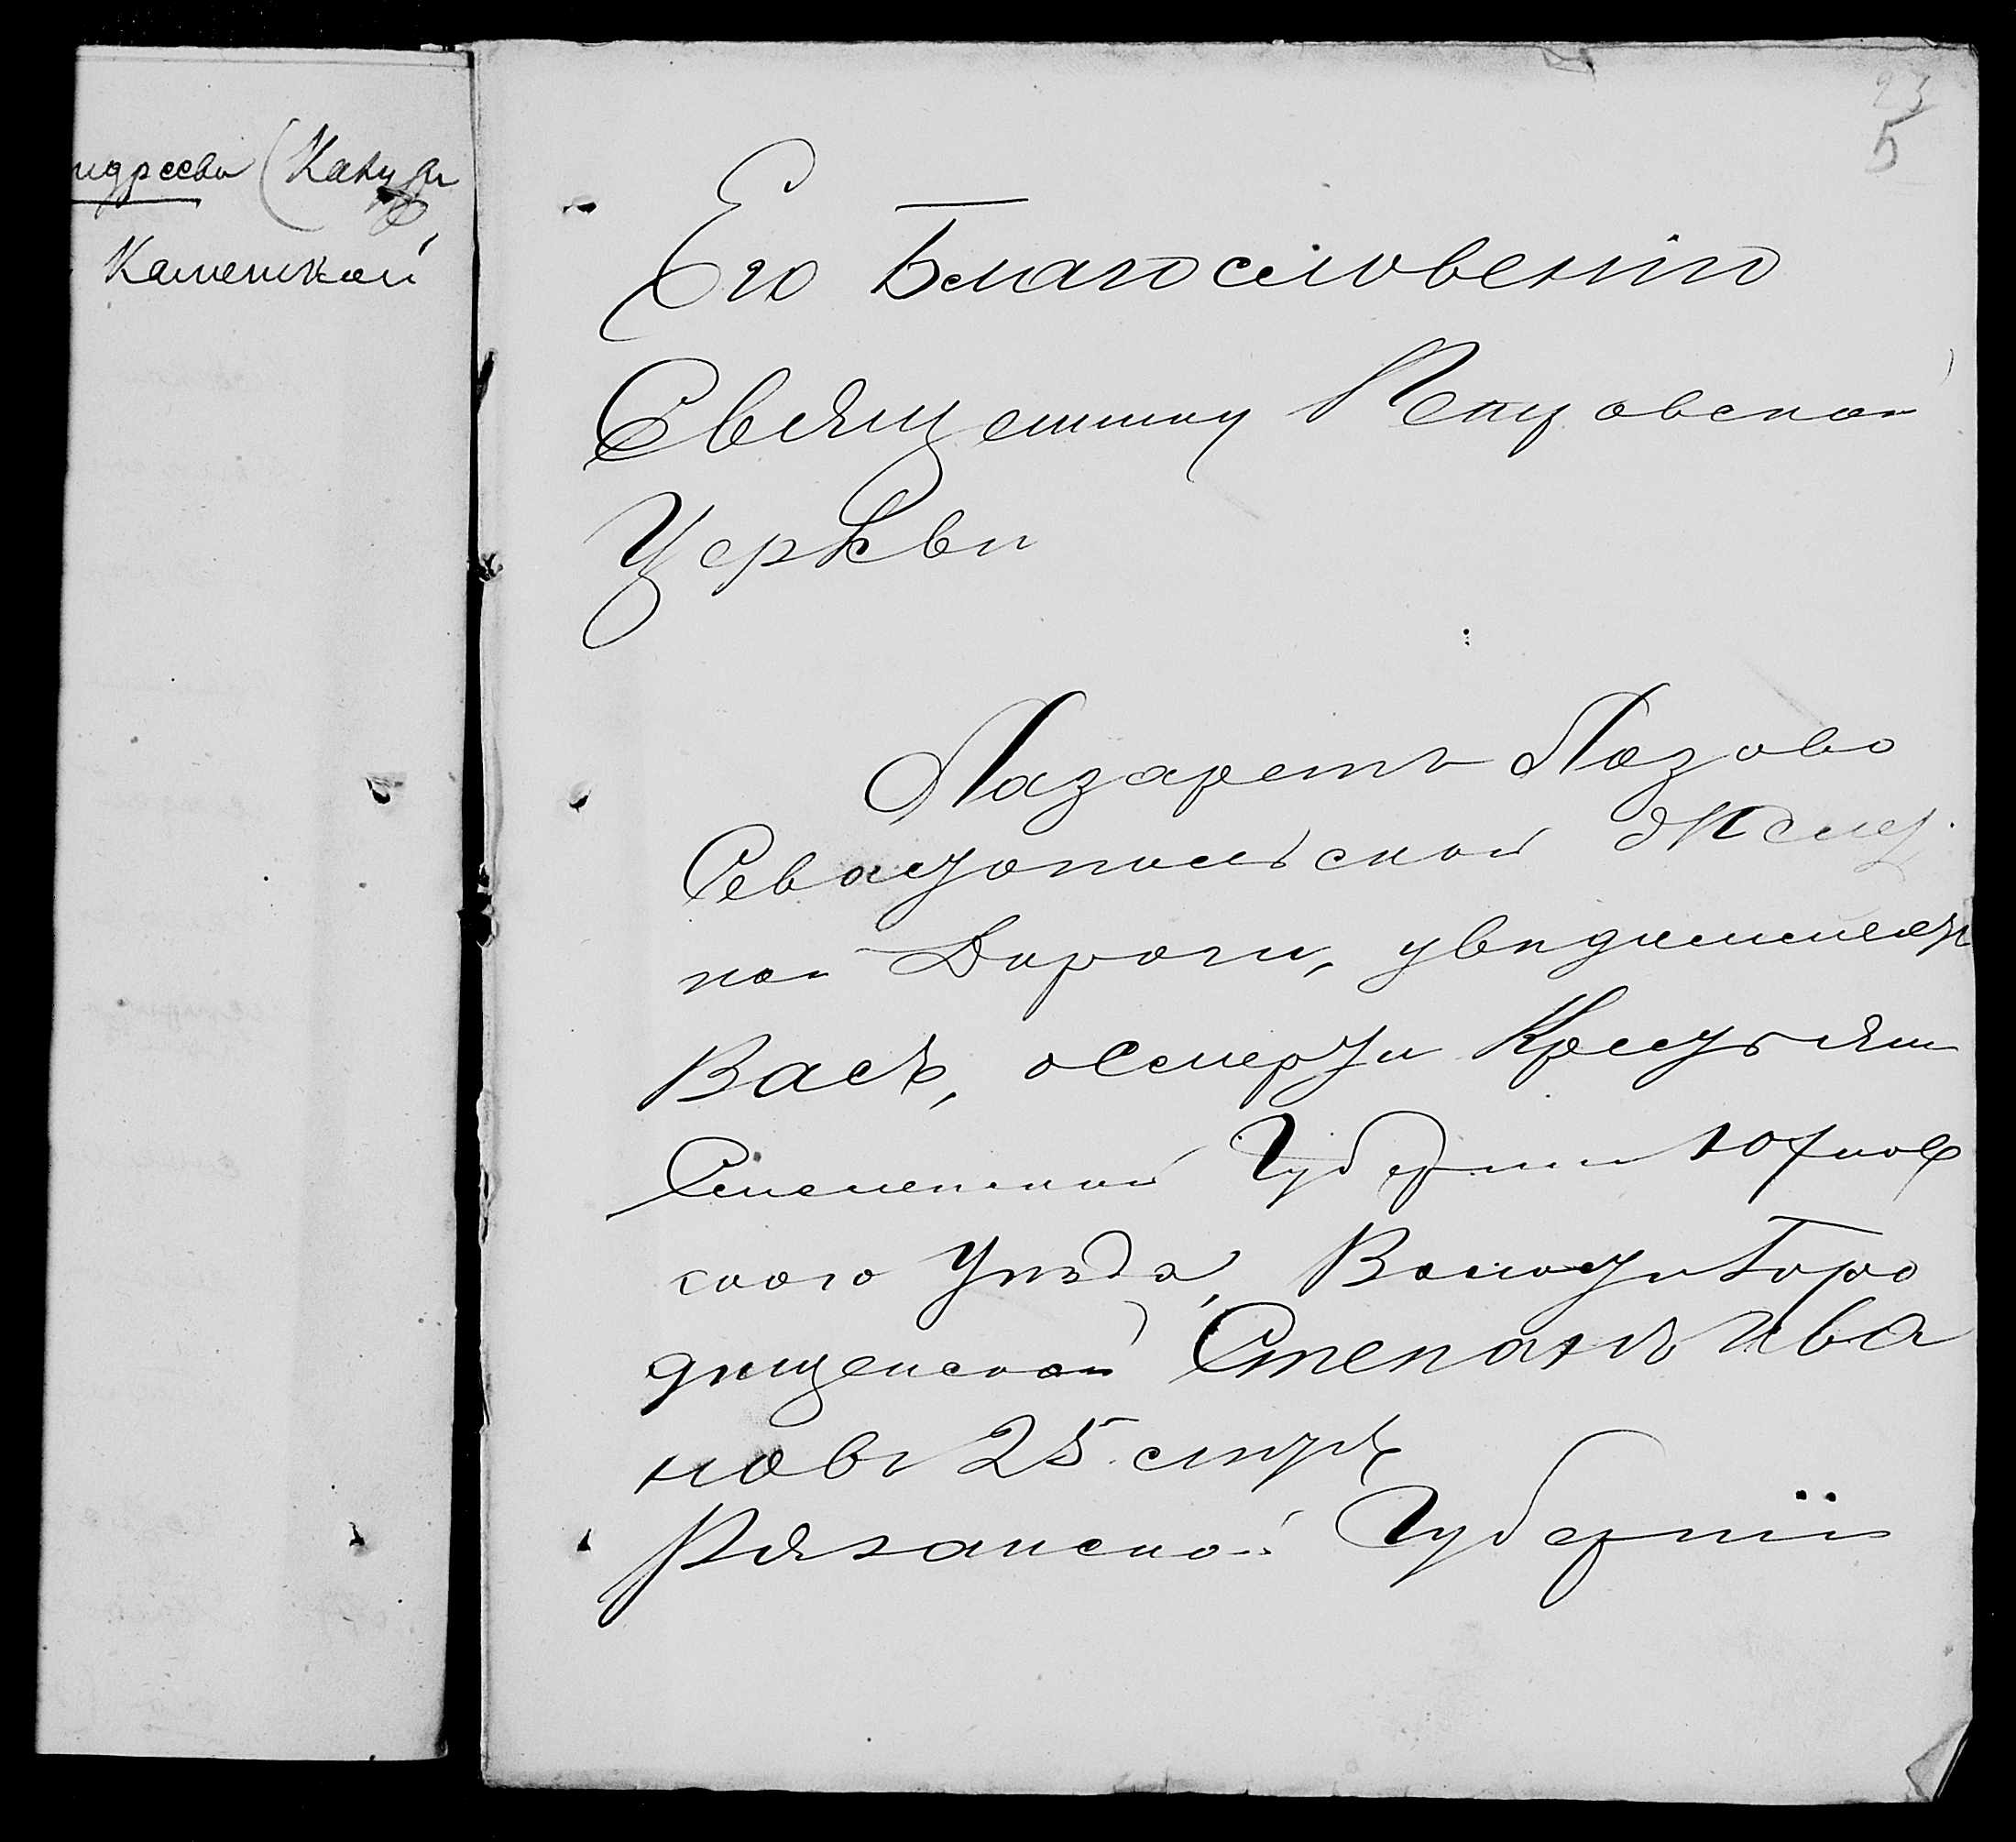 ндреевы (Кануж
Каменской
23
5
Его Благословению
Священнику Петровской
Церкви
Лазаретъ Лозово
Севастопольской Желѣз
ной Дороги, увидомляетъ
Васъ, о Смерти Крестьян
Смоленской Губерніи Юхнов
скаго Уѣзда, Волости Горо
дищенской Степанъ Ива
новъ 25 лѣтъ
Рязанской Губерніи